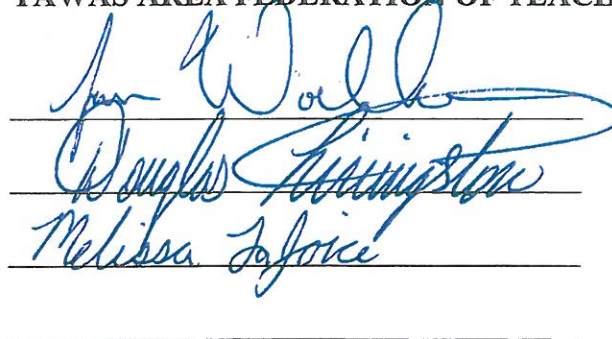 TAWAS AREA FEDERATION OF TEAC
Douglas Livingston
Melissa LaJoice